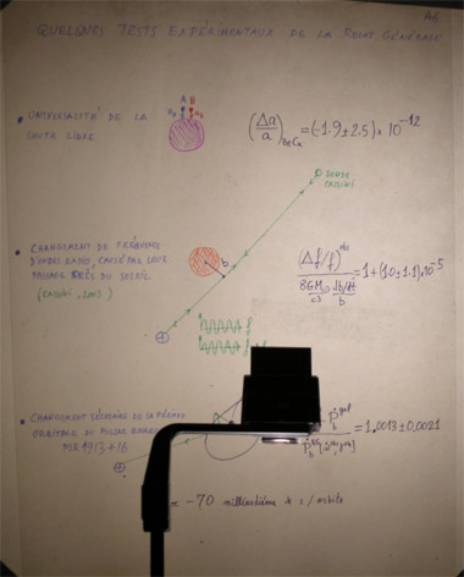 A6
QUELQUES TESTS EXPÉRIMENTAUX DE LA RELAT. GÉNÉRALE
A B
• UNIVERSALITÉ DE LA
CHUTE LIBRE
(Δa/a)BeCu = (-1.9±2.5) × 10^-12
SONDE
CASSINI
• CHANGEMENT DE FRÉQUENCE
D'ONDES RADIO, CAUSÉ PAR LEUR
PASSAGE PRÈS DU SOLEIL
(CASSINI, 2003)
b
(Δf/f)obs / (8GM/c3 db/dt / b) = 1 + (1.0±1.1) × 10^-5
f
• CHANGEMENT SÉCULAIRE DE LA PÉRIODE
ORBITALE DU PULSAR BINAIRE
PSR 1913+16
= 1.0013±0.0021
= -70 milliardième de s / orbite